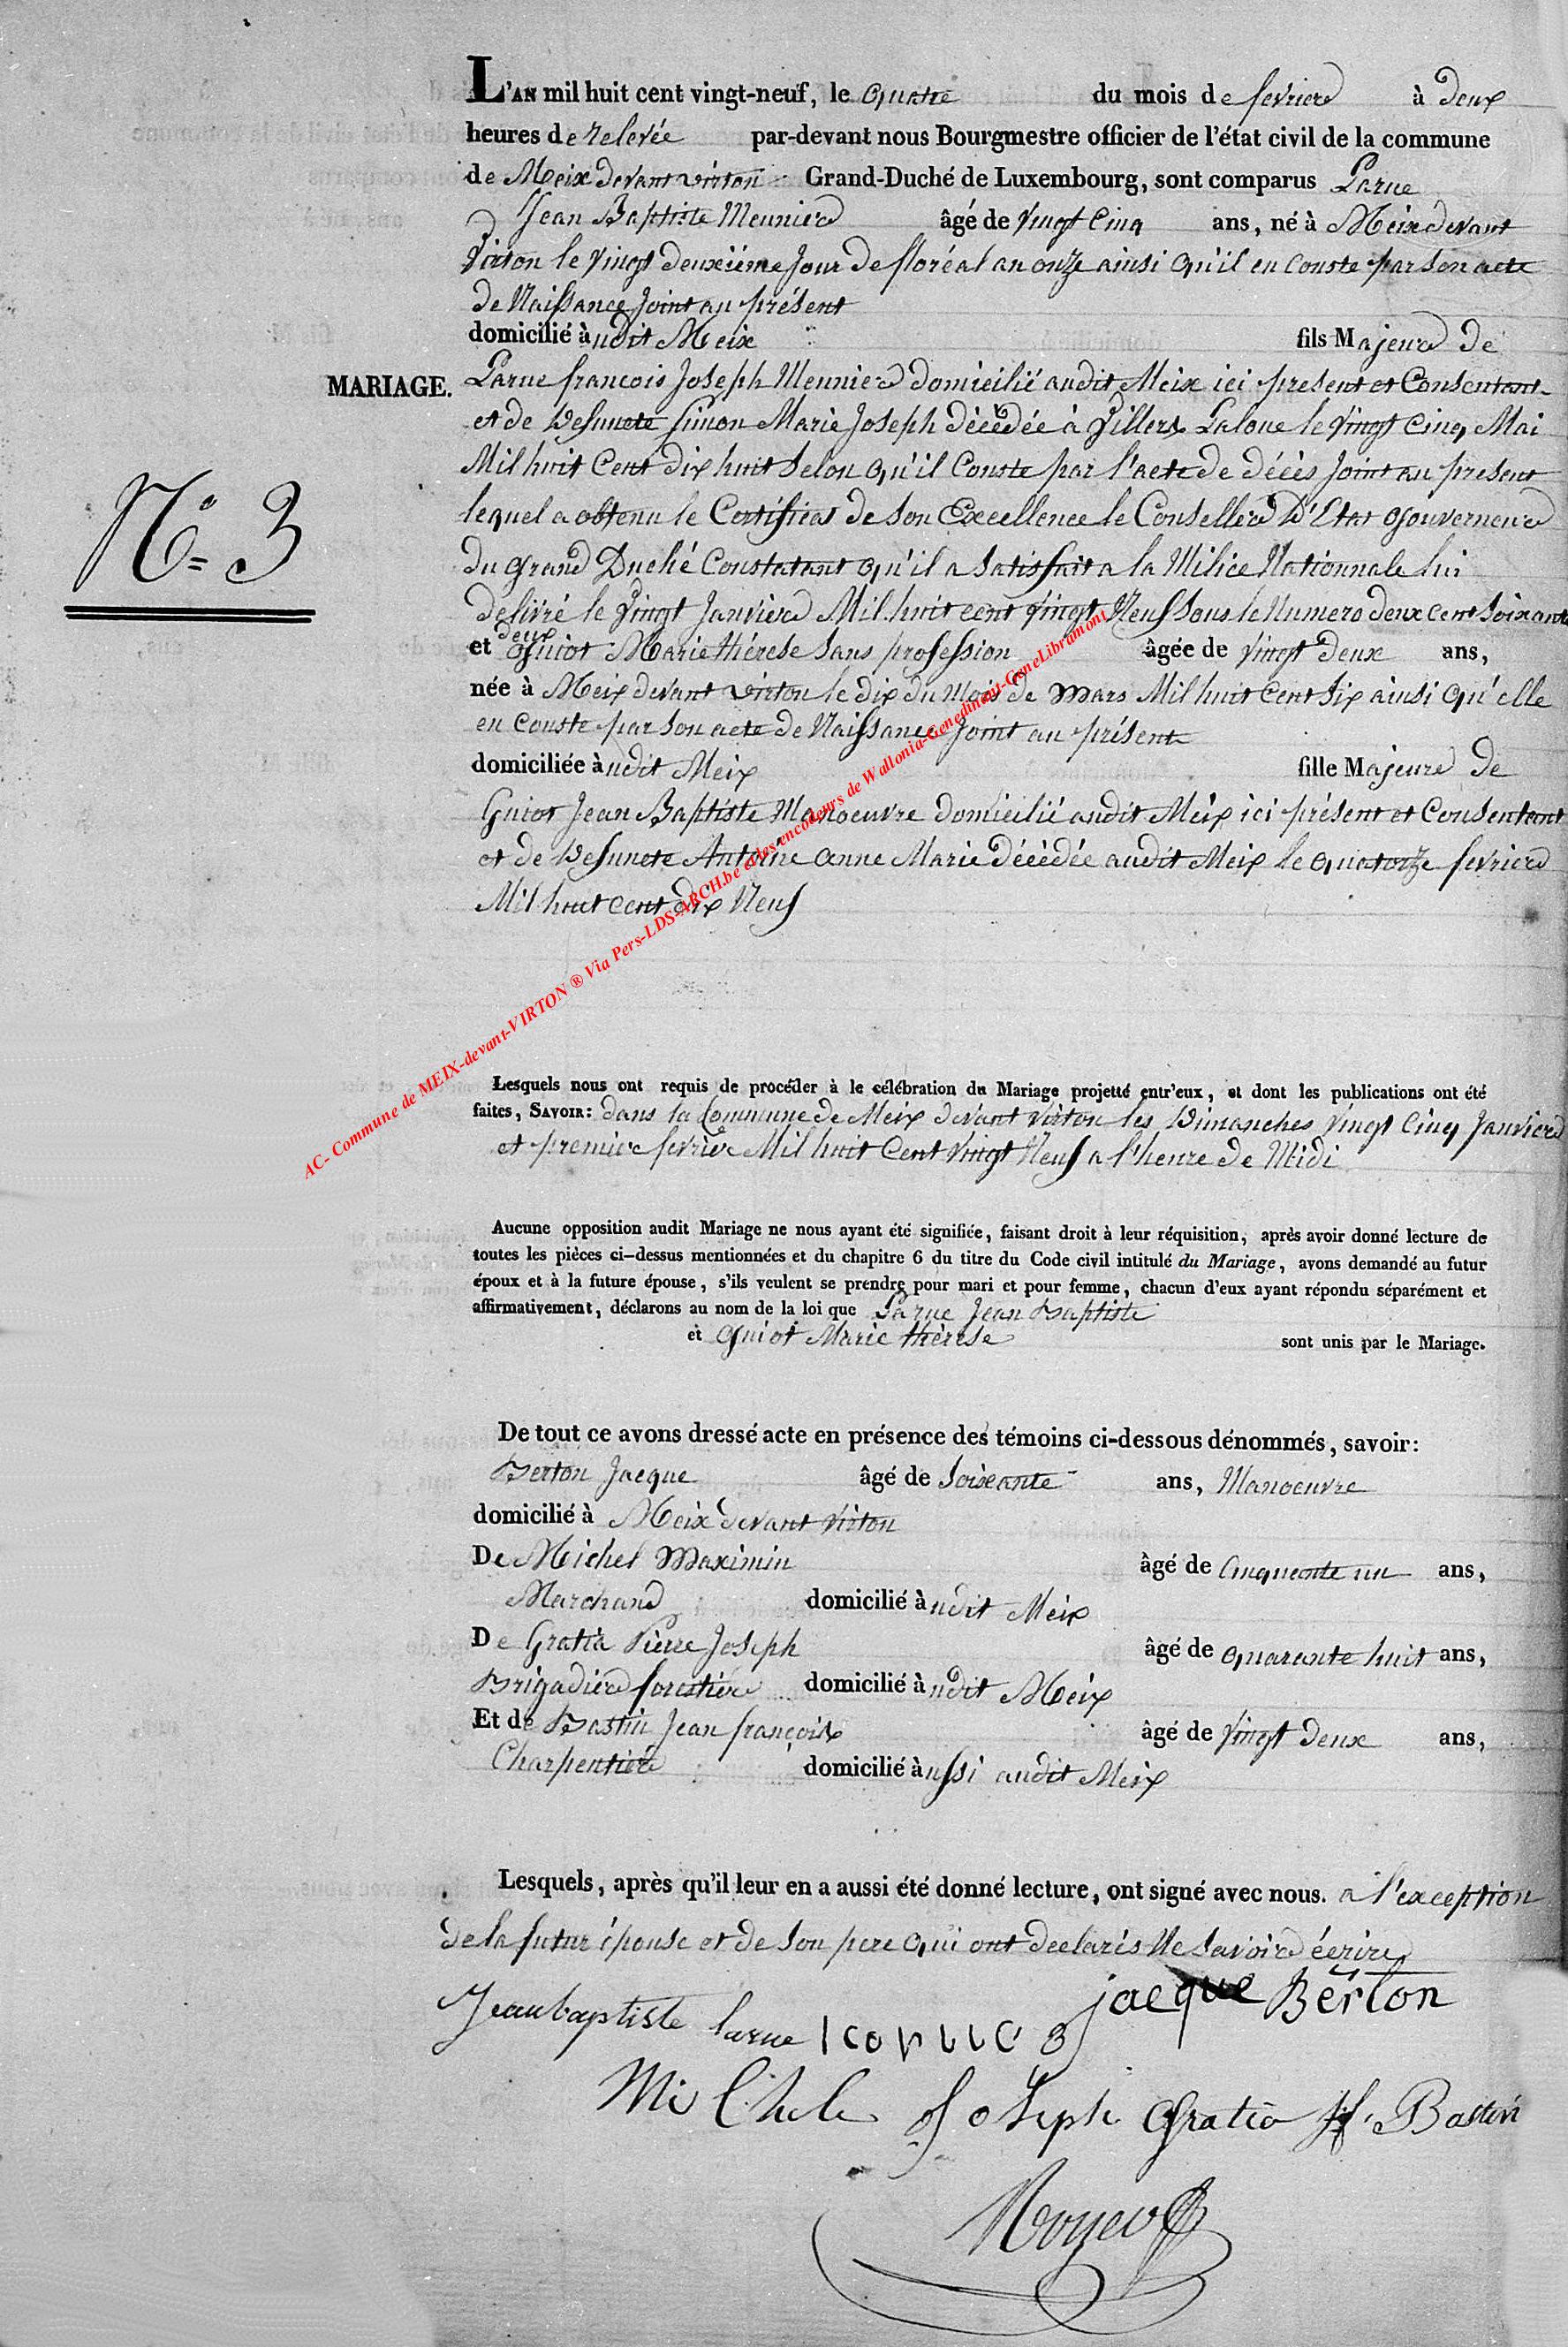 L'AN mil huit cent vingt-neuf, le quatre du mois de fevrier à deux
heures de relevée par-devant nous Bourgmestre officier de l'état civil de la commune
de Meix devant virton Grand-Duché de Luxembourg, sont comparus Larue
Jean Baptiste Meunier âgé de vingt Cinq ans, né à Meix devant
Virton le vingt deuxiéme Jour de floréal an onze ainsi qu'il en Conste par son acte
de Naissance Joint au présent
domicilié à udit Meix fils Majeur de
MARIAGE.
Larue francois Joseph Meunier domicilié audit Meix ici present et Consentant
et de Defuncte Simon Marie Joseph décédée à Villers Laloue le vingt Cinq Mai
Mil huit Cent dix huit Selon qu'il Conste par l'acte de décès Joint au present
N° 3
lequel a obtenu le Certificat de Son Excellence le Conseller D'Etat Gouverneur
du Grand Duché Constatant qu'il a Satisfait a la Milice Nationnale lui
delivré le Vingt Janvier Mil huit cent vingt Neuf sous le Numero deux cent Soixante
deux
et Guiot Marie thérese Sans profession âgée de Vingt deux ans,
née à Meix devant virton le dix du Mois de Mars Mil huit Cent Six ainsi qu'elle
en Conste par Son acte de Naissance Joint au présent
domiciliée à udit Meix fille Majeure de
Guiot Jean Baptiste Manoeuvre domicilié audit Meix ici présent et Consentant
et de Defuncte Antoine anne Marie Décédée audit Meix le quatorze fevrier
Mil huit cent dix Neuf
AC- Commune de MEIX-devant-VIRTON ® Via Pers-LDS-ARCH.be et les encodeurs de Wallonia-Genedinant-GeneLibramont
Lesquels nous ont requis de procéder à le célébration du Mariage projetté entr'eux, et dont les publications ont été
faites, SAVOIR: dans la Commune de Meix devant virton les Dimanches Vingt Cinq Janvier
et premier fevrier Mil huit Cent Vingt Neuf a l'heure de Midi
Aucune opposition audit Mariage ne nous ayant été signifiée, faisant droit à leur réquisition, après avoir donné lecture de
toutes les pièces ci-dessus mentionnées et du chapitre 6 du titre du Code civil intitulé du Mariage, avons demandé au futur
époux et à la future épouse, s'ils veulent se prendre pour mari et pour femme, chacun d'eux ayant répondu séparément et
affirmativement, déclarons au nom de la loi que Larue Jean Baptiste
et Guiot Marie thérese sont unis par le Mariage.
De tout ce avons dressé acte en présence des témoins ci-dessous dénommés, savoir:
Berton Jacque âgé de Soixante ans, Manoeuvre
domicilié à Meix devant virton
De Michel Maximin âgé de Cinquante un ans,
Marchand domicilié à udit Meix
De Gratia Pierre Joseph âgé de quarante huit ans,
Brigadier forestier domicilié à udit Meix
Et de Bastin Jean françois âgé de vingt deux ans,
Charpentier domicilié à ussi audit Meix
Lesquels, après qu'il leur en a aussi été donné lecture, ont signé avec nous. a l'exception
de la futur épouse et de Son pere qui ont declarés Ne Savoir écrire
jacque Berton
Jeanbaptiste larue
Michel Joseph Gratia Jf. Bastin